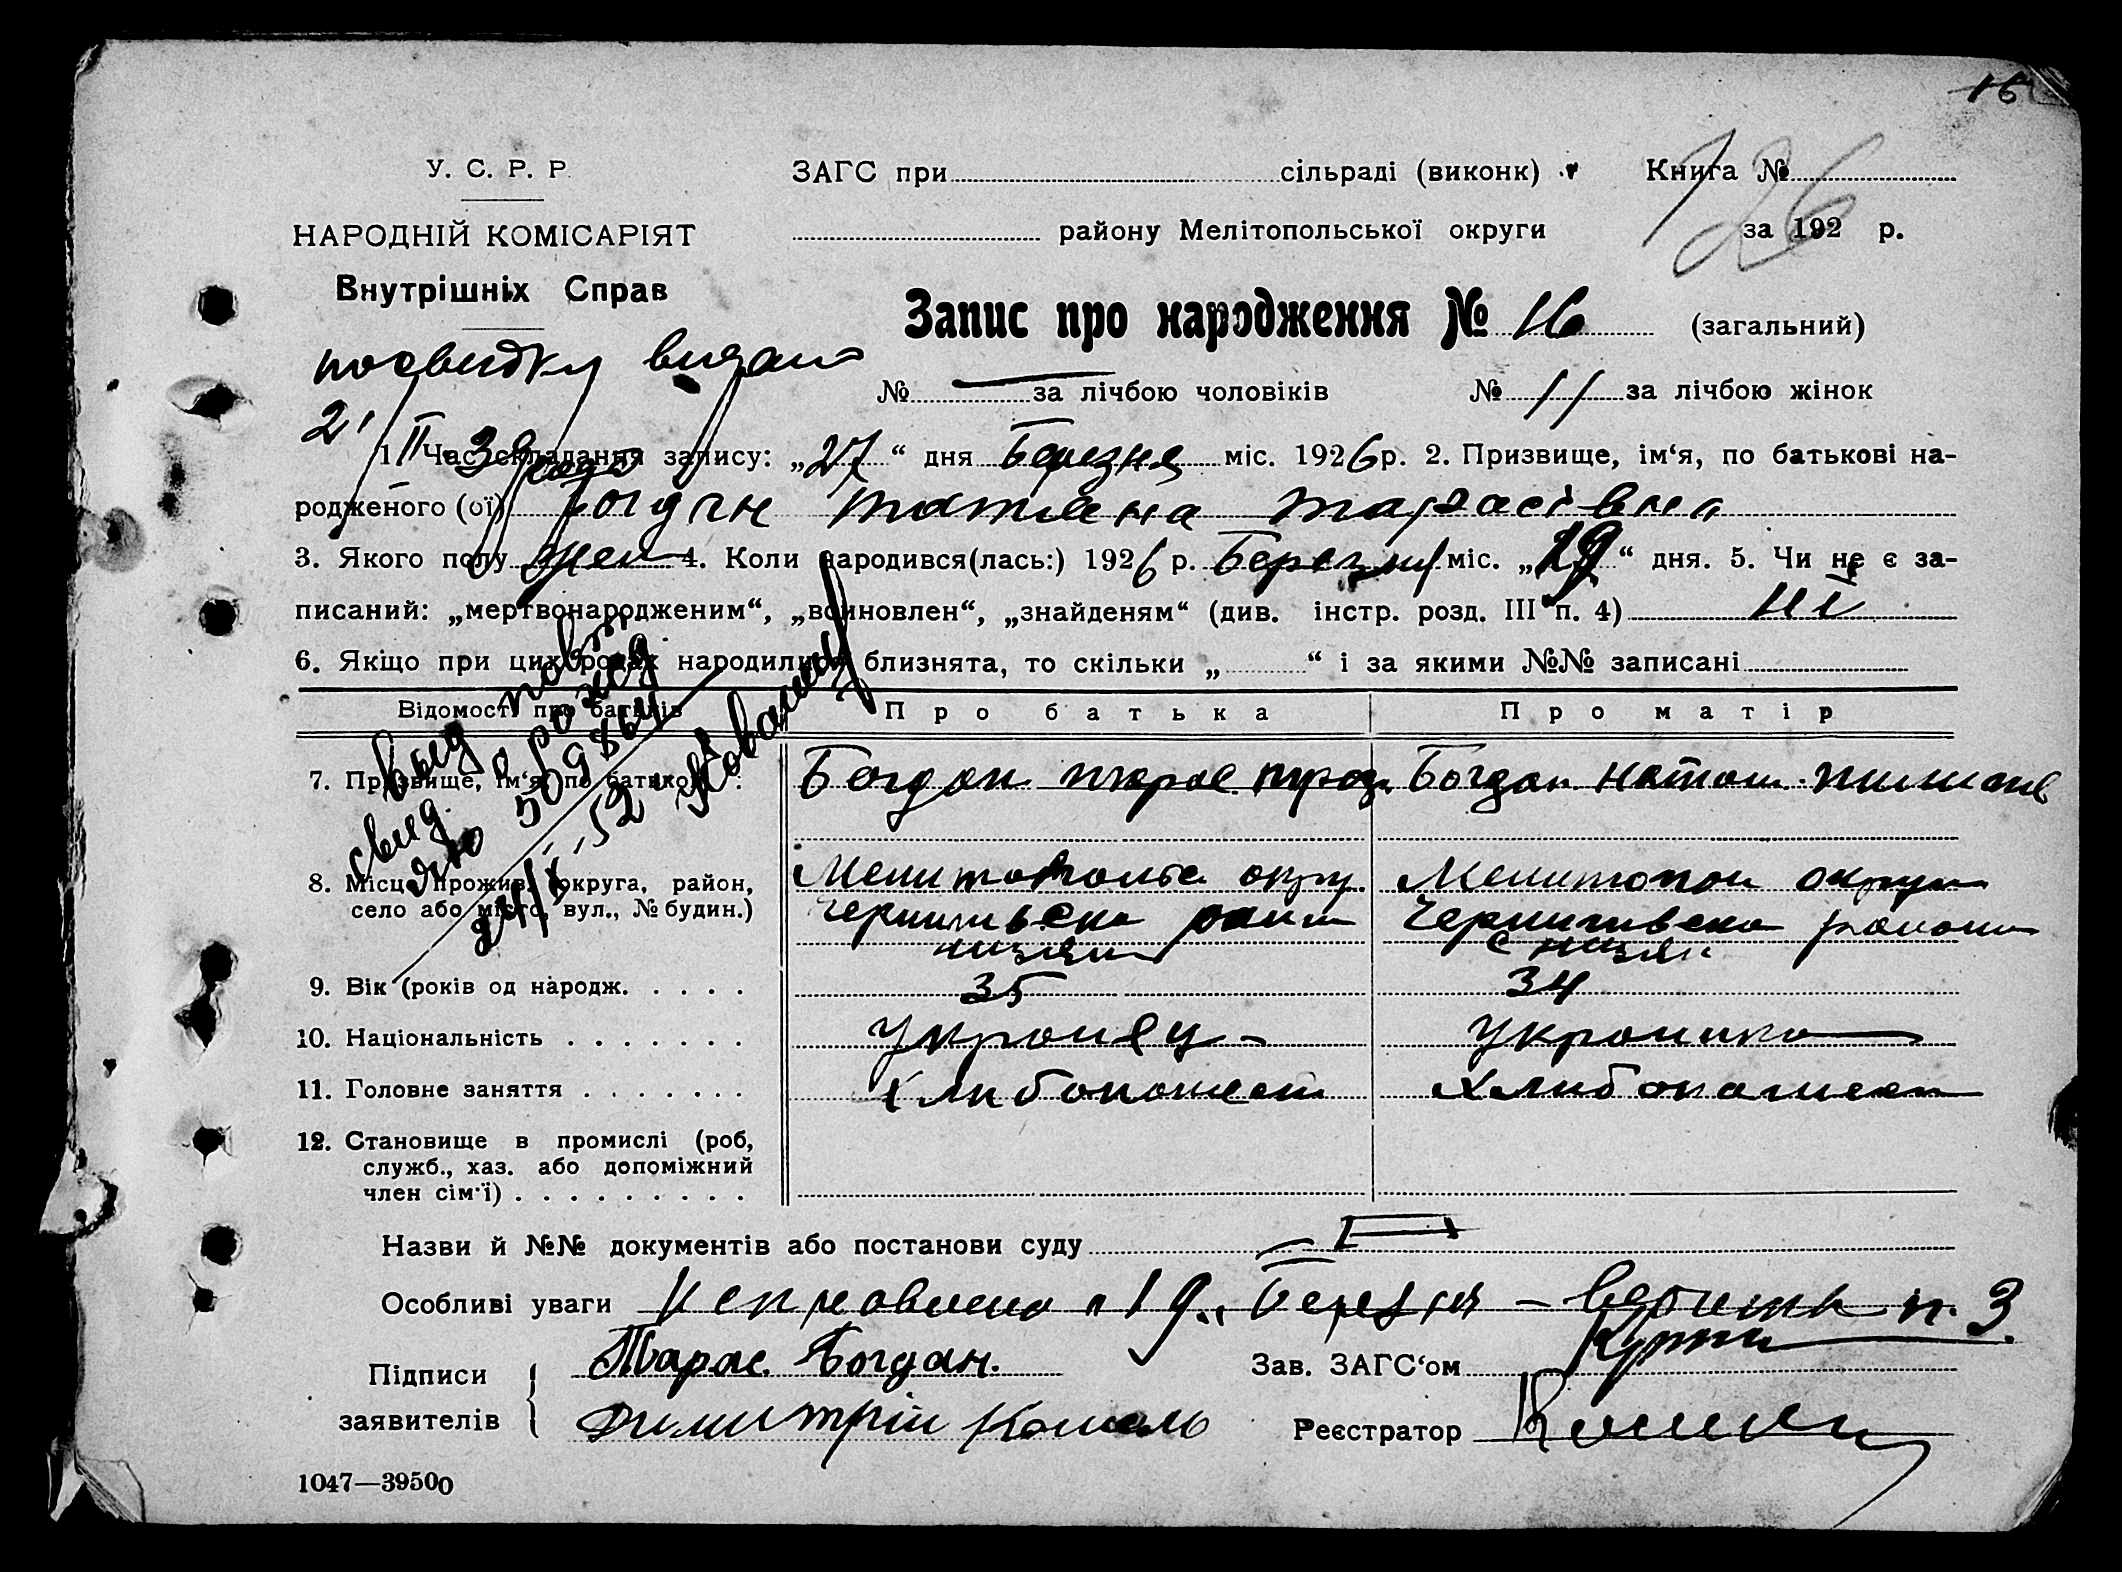 16
У. С. Р. Р.
ЗАГС при сільраді (виконк)
Книга №
126
НАРОДНІЙ КОМІСАРІЯТ
району Мелітопольської округи
за 192 р.
Внутрішніх Справ
Запис про народження № 16 (загальний)
посвидку видано
№ — за лічбою чоловіків № 11 за лічбою жінок
2/II 38 года
1. Час складання запису: „27“ дня Березня міс. 1926 р. 2. Призвище, ім‘я, по батькові на-
родженого (ої) Богдан Татяна Тарасівна
3. Якого полу жен 4. Коли народився(лась:) 1926 р. Березня міс. „19“ дня. 5. Чи не є за-
писаний: „мертвонародженим“, „воиновлен“, „знайденям“ (див. інстр. розд. III п. 4) ні
6. Якщо при цих родах народилися близнята, то скільки „ “ і за якими №№ записані
Выд повт.
свид. о рожд
ЯЮ 509864
24/X-52
Відомості про батьків
Про батька
Про матір
7. Призвище, ім‘я, по батькові:
Богдан Тарас
Богдан Наталя
8. Місце прожив. (округа, район,
село або місто, вул., № будин.)
Мелитопольс округ
Мелитопол округи
Чернигивска район
Чернигивска района
низяни
с низяни
9. Вік (років од народж.
35
34
10. Національність
Українец
Українка
11. Головне заняття
Хлибопашест
Хлибопашест
12. Становище в промислі (роб,
служб., хаз. або допоміжний
член сім‘ї)
Назви й №№ документів або постанови суду
Особливі уваги Исправлено „19„ Березня – п. 3
Підписи
заявителів
Тарас Богдан.
Димитрій Коваль
Зав. ЗАГС‘ом
Реєстратор
1047—39500